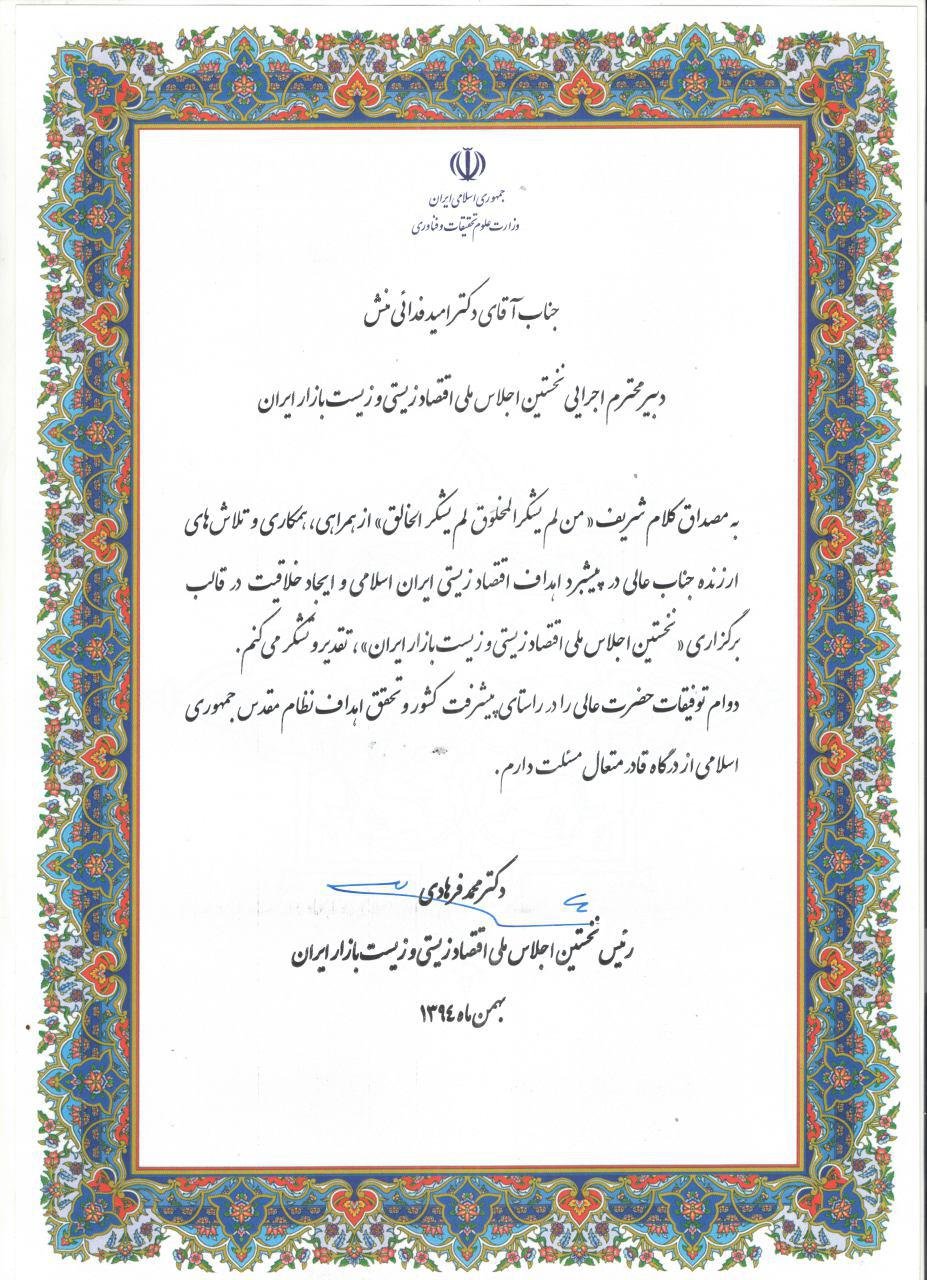 جمهوری اسلامی ایران
وزارت علوم تحقیقات و فناوری
جناب آقای دکتر امید فدائی منش
دبیر محترم اجرایی نخستین اجلاس ملی اقتصاد زیستی و زیست بازار ایران
به مصداق کلام شریف «من لم یشکر المخلوق لم یشکر الخالق» از همراهی، همکاری و تلاش های
ارزنده جناب عالی در پیشبرد اهداف اقتصاد زیستی ایران اسلامی و ایجاد خلاقیت در قالب
برگزاری «نخستین اجلاس ملی اقتصاد زیستی و زیست بازار ایران»، تقدیر و تشکر می کنم.
دوام توفیقات حضرت عالی را در راستای پیشرفت کشور و تحقق اهداف نظام مقدس جمهوری
اسلامی از درگاه قادر متعال مسئلت دارم.
دکتر محمد فرهادی
رئیس نخستین اجلاس ملی اقتصاد زیستی و زیست بازار ایران
بهمن ماه ۱۳۹۴